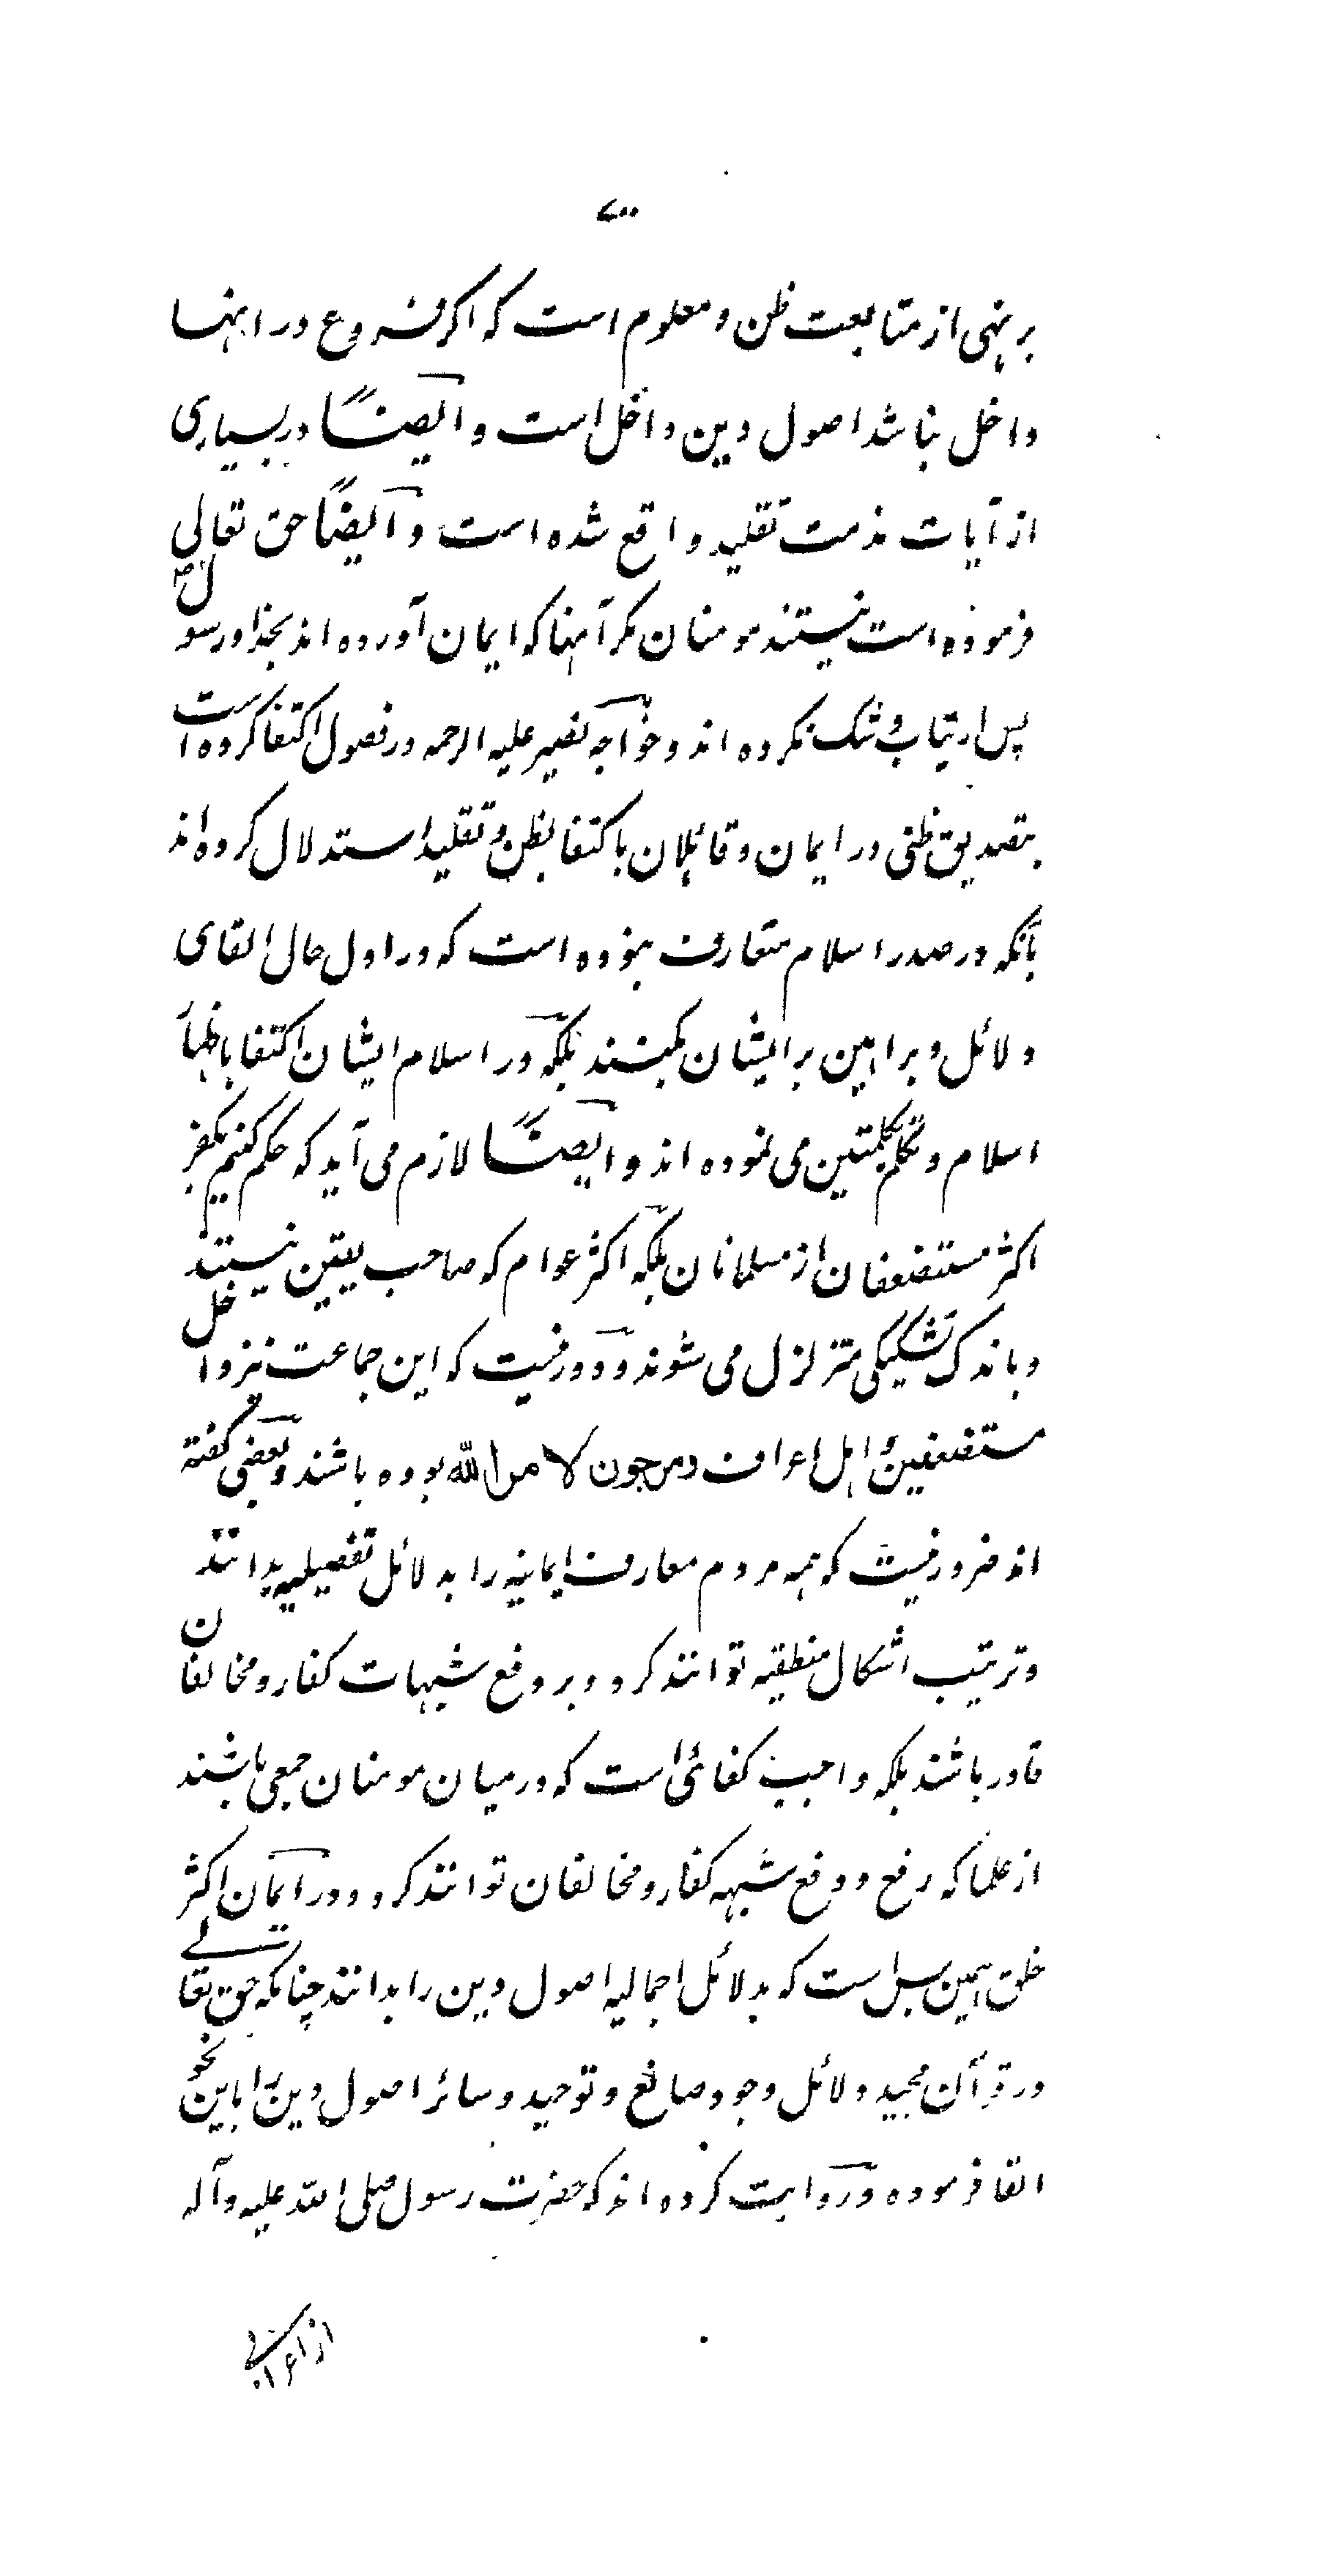 ۷۰۰
بر نهی از متابعت ظن و معلوم است که اکر فروع در اینها
داخل نباشد اصول دین داخل است و ایضاً در بسیاری
از آیات مذمت تقلید واقع شده است و ایضاً حق تعالی
فرموده است نیستند مومنان مکر آنها که ایمان آورده اند بخدا و رسول
پس ارتیاب و شک نکرده اند و خواجه نصیر علیه الرحمه در فصول اکتفا کرده است
بتصدیق ظنی در ایمان و قائلان باکتفا بظن و تقلید استدلال کرده اند
بآنکه در صدر اسلام متعارف نبوده است که در اول حال القای
دلائل و براهین بر ایشان بکنند بلکه در اسلام ایشان اکتفا باظهار
اسلام و تکلم بکلمتین می نموده اند و ایضاً لازم می آید که حکم کنیم بکفر
اکثر مستضعفان از مسلمانان بلکه اکثر عوام که صاحب یقین نیستند
و باندک تشکیکی متزلزل می شوند و دور نیست که این جماعت نیز داخل
مستضعفین و اهل اعراف و مرجون لامر الله بوده باشند و بعضی کفته
اند ضرور نیست که همه مردم معارف ایمانیه را بدلائل تفصیلیه بدانند
و ترتیب اشکال منطقیه توانند کرد و بر دفع شبهات کفار و مخالفان
قادر باشند بلکه واجب کفائی است که در میان مومنان جمعی باشند
از علما که رفع و دفع شبهه کفار و مخالفان توانند کرد و در ایمان اکثر
خلق همین بس است که بدلائل اجمالیه اصول دین را بدانند چنانکه حق تعالے
در قرآن مجید دلائل وجود صانع و توحید و سائر اصول دین را باین نحو
القا فرموده و روایت کرده اند که حضرت رسول صلی الله علیه و آله
از اعرابی